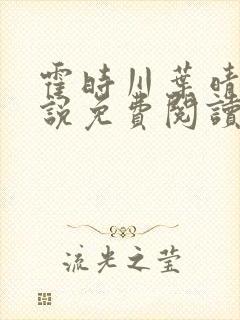 霍時川葉晴
說免費閱讀
流光之莹